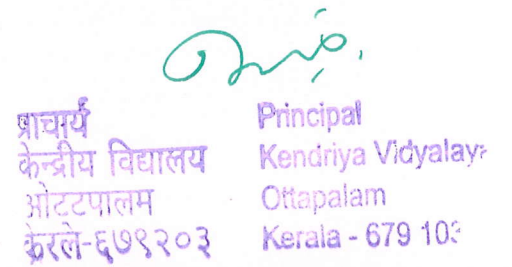 प्राचार्य
केन्द्रीय विद्यालय
ओटटपालम
केरले-६७९२०३
Principal
Kendriya Vidyalaya
Ottapalam
Kerala - 679 103